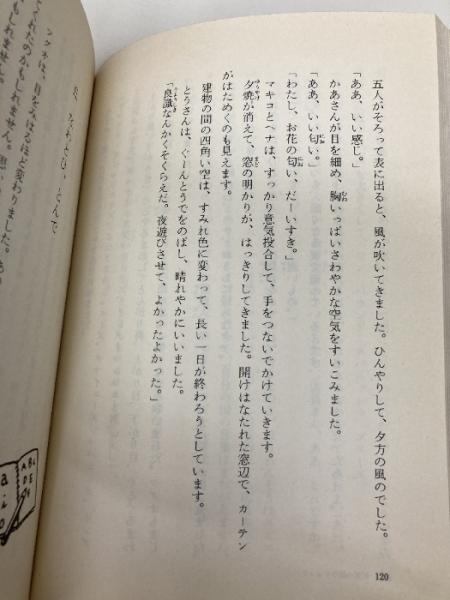 五人がそろって表に出ると、風が吹いてきました。ひんやりして、夕方の風のでした。
「ああ、いい感じ。」
かあさんが目を細め、胸いっぱいさわやかな空気をすいこみました。
「ああ、いい匂い。」
「わたし、お花の匂い、だーいすき。」
マキコとヘナは、すっかり意気投合して、手をつないでかけていきます。
夕焼が消えて、窓の明かりが、はっきりしてきました。開けはなたれた窓辺で、カーテン
がはためくのも見えます。
建物の間の四角い空は、すみれ色に変わって、長い一日が終わろうとしています。
とうさんは、ぐーんとうでをのばし、晴れやかにいいました。
「良識なんかくそくらえだ。夜遊びさせて、よかったよかった。」
120
は、目をみはるほど変わりました。
てくれたのかもしれません。
もしれません。